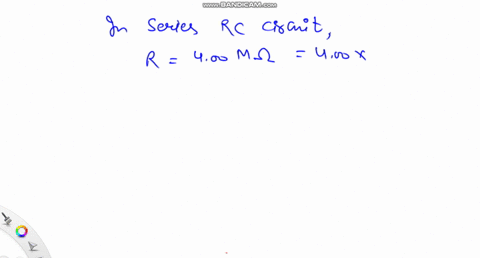 WWW.BANDICAM.COM
In series RC circuit,
R = 4.00 MΩ = 4.00 x